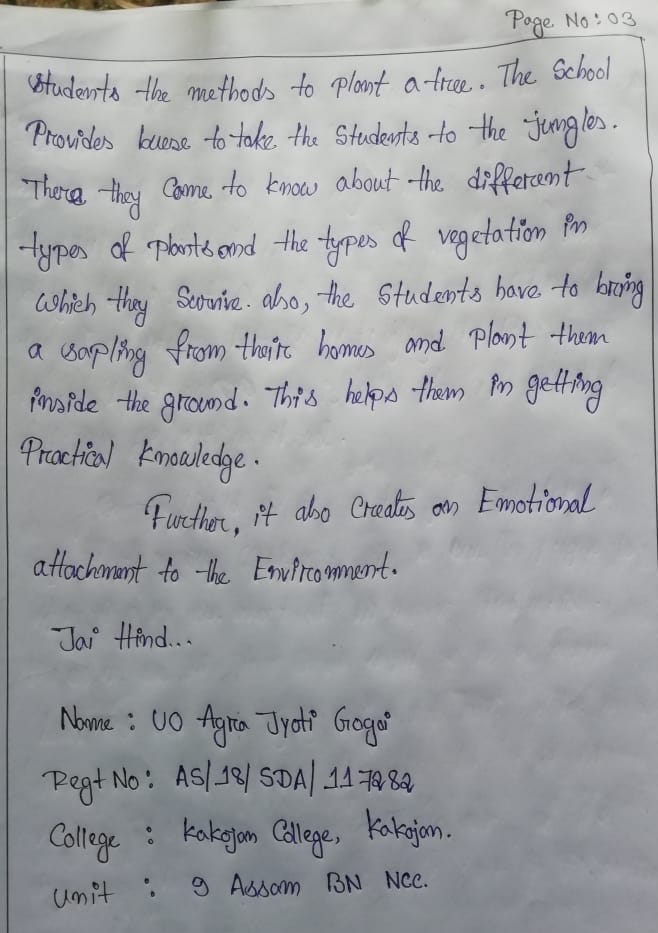 Page No: 03
Students the methods to plant a tree. The School
Provides buese to take the Students to the jungles.
There they Come to know about the different
types of plants and the types of vegetation in
which they Survive. also, the Students have to bring
a sapling from their homes and plant them
inside the ground. This helps them in getting
Practical knowledge.
Further, it also Creates an Emotional
attachment to the Environment.
Jai Hind...
Name : UO Agra Jyoti Gogoi
Regt No: AS/18/SDA/117282
College : Kakojan College, Kakojan.
Unit : 9 Assam BN NCC.